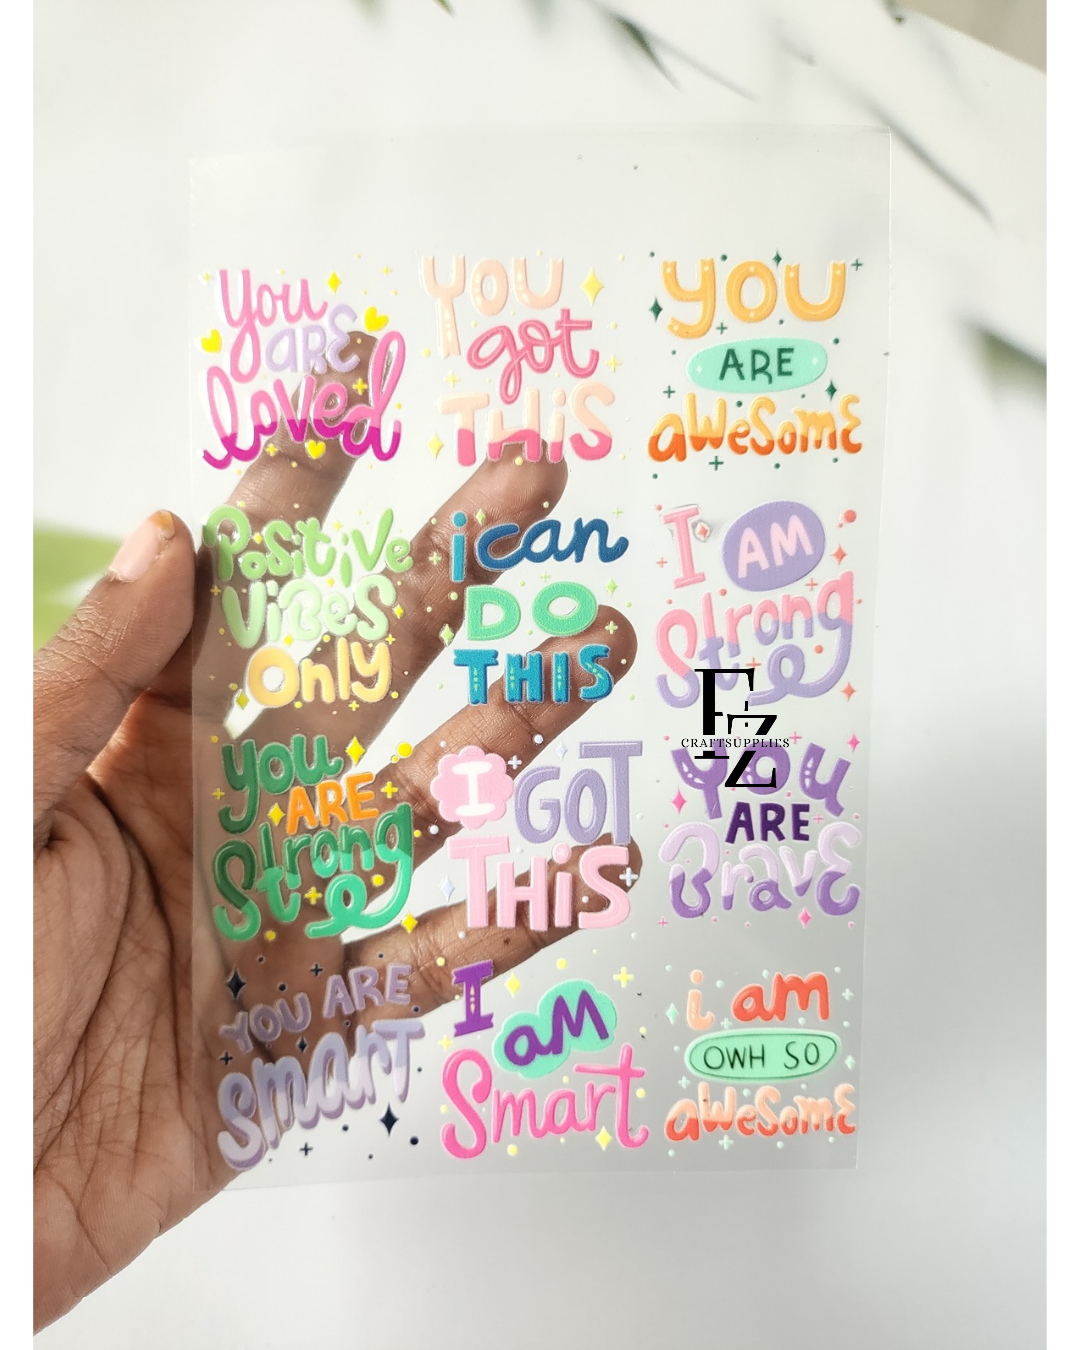 You
ARE
loved
YOU
got
THiS
YOU
ARE
aWeSomE
PoSitiVe
ViBeS
Only
i can
DO
THIS
I AM
Strong
You
ARE
Strong
I GOT
THiS
YOU
ARE
BravE
YOU ARE
smarT
I aM
Smart
i am
OWH SO
aWeSomE
FZ
CRAFTSUPPLIES